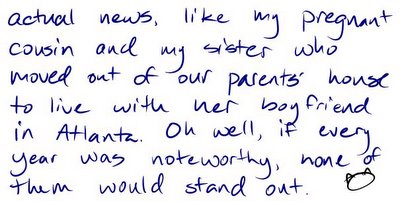 actual news, like my pregnant
cousin and my sister who
moved out of our parents' house
to live with her boyfriend
in Atlanta. Oh well, if every
year was noteworthy, none of
them would stand out.